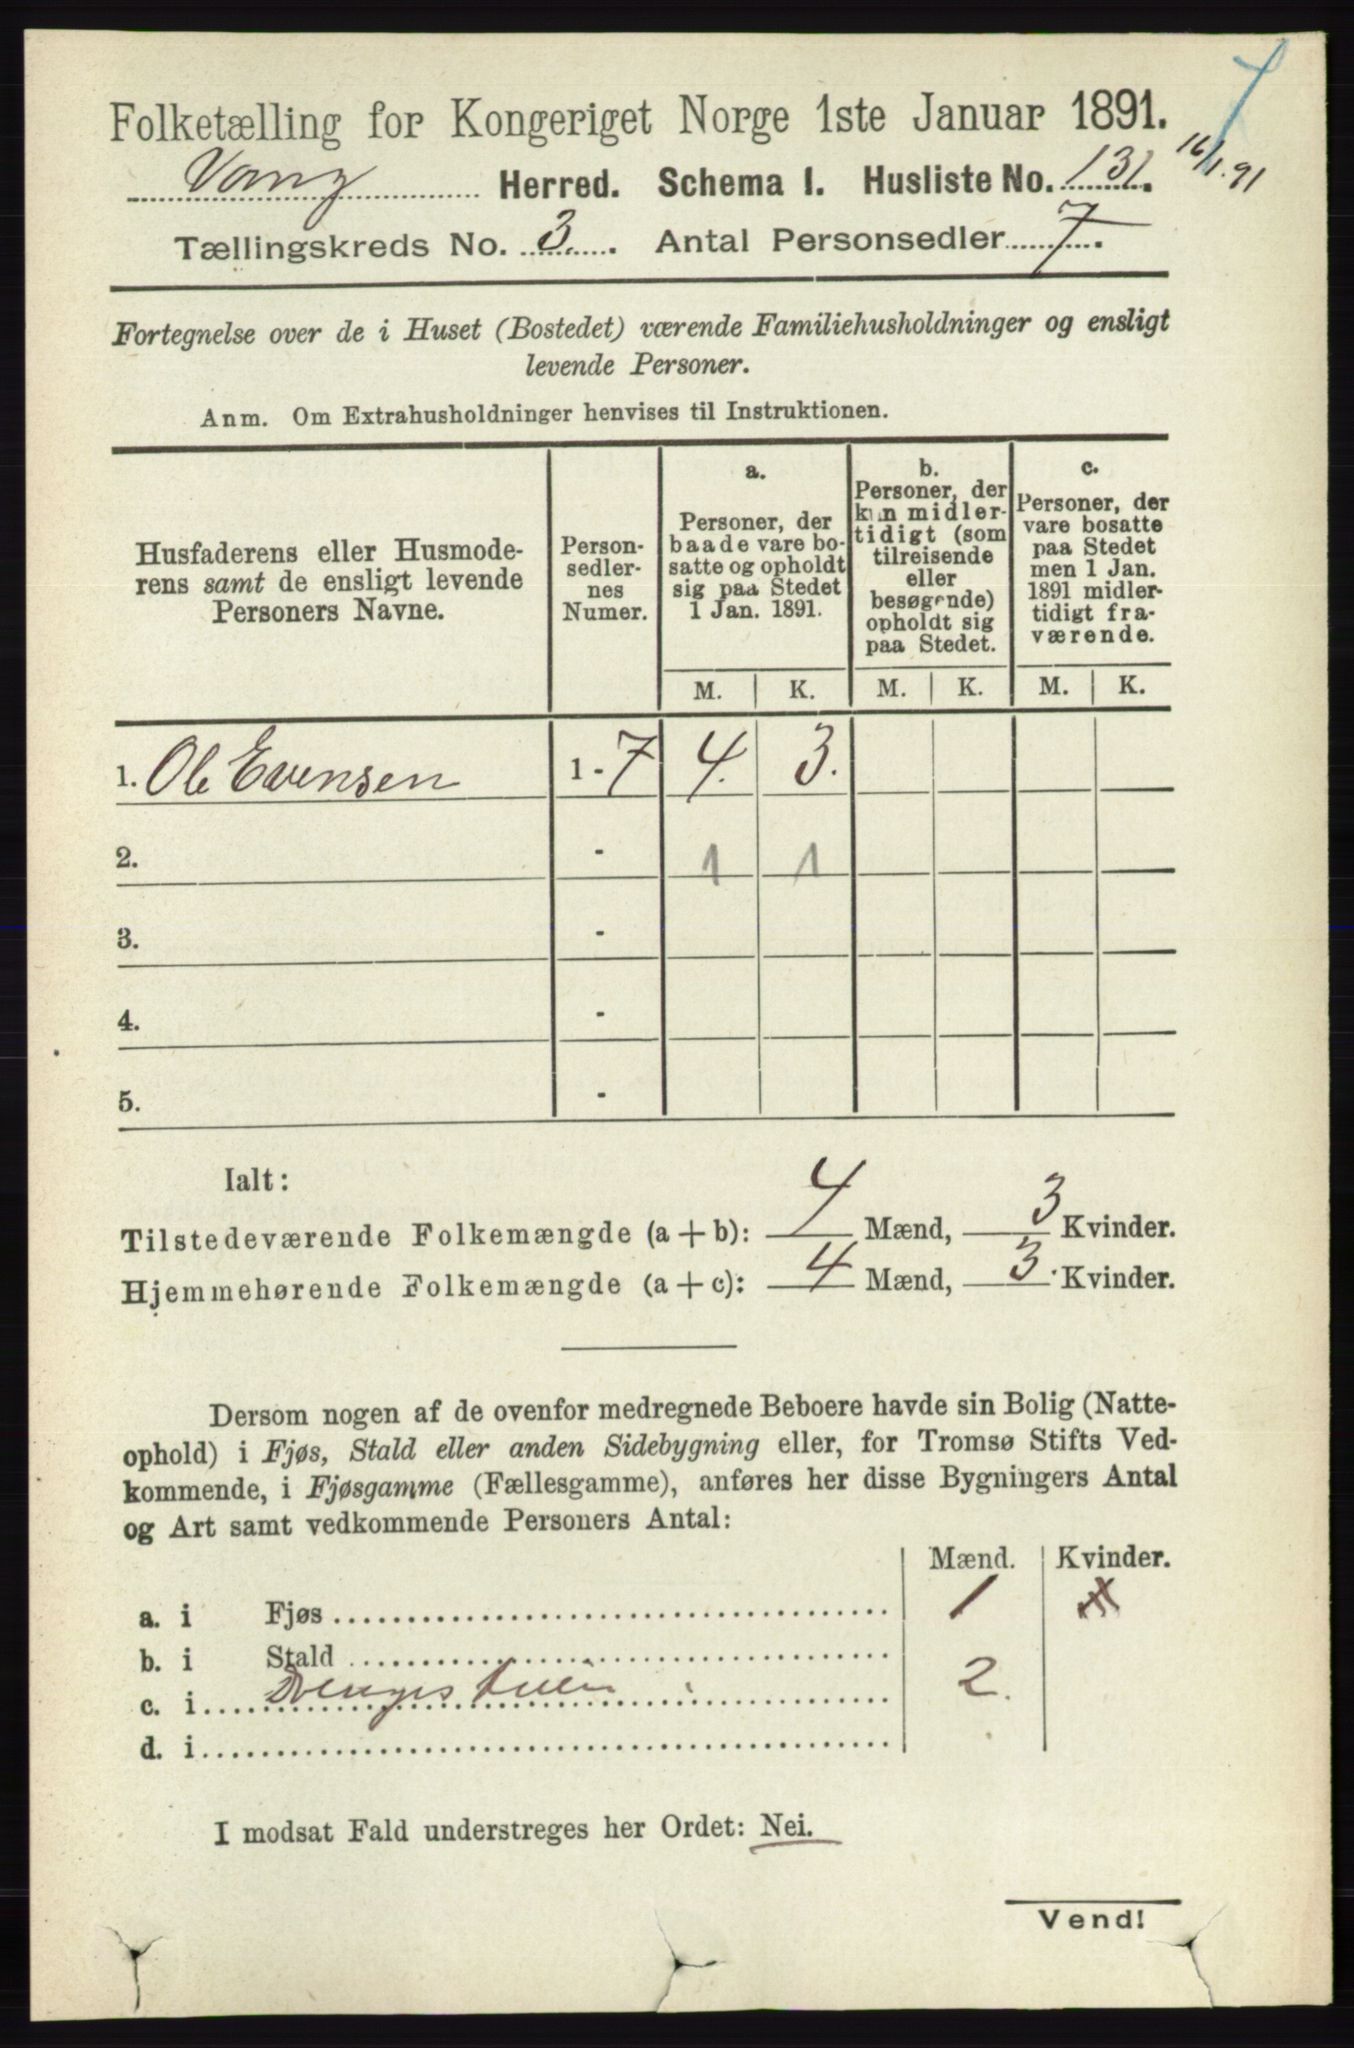 Folketælling for Kongeriget Norge 1ste Januar 1891.
16/1.91
Vang Herred. Schema I. Husliste No. 131.
Tællingskreds No. 3. Antal Personsedler 7.
Fortegnelse over de i Huset (Bostedet) værende Familiehusholdninger og ensligt
levende Personer.
Anm. Om Extrahusholdninger henvises til Instruktionen.
Husfaderens eller Husmode-
rens samt de ensligt levende
Personers Navne.
Person-
sedler-
nes
Numer.
a.
Personer, der
baade vare bo-
satte og opholdt
sig paa Stedet
1 Jan. 1891.
b.
Personer, der
kun midler-
tidigt (som
tilreisende
eller
besøgende)
opholdt sig
paa Stedet.
c.
Personer, der
vare bosatte
paa Stedet
men 1 Jan.
1891 midler-
tidigt fra-
værende.
M. K. M. K. M. K.
1. Ole Evensen 1 - 7 4. 3.
2. - 1 1
3. -
4. -
5. -
Ialt:
Tilstedeværende Folkemængde (a + b): 4 Mænd, 3 Kvinder.
Hjemmehørende Folkemængde (a + c): 4 Mænd, 3. Kvinder.
Dersom nogen af de ovenfor medregnede Beboere havde sin Bolig (Natte-
ophold) i Fjøs, Stald eller anden Sidebygning eller, for Tromsø Stifts Ved-
kommende, i Fjøsgamme (Fællesgamme), anføres her disse Bygningers Antal
og Art samt vedkommende Personers Antal:
Mænd. Kvinder.
a. i Fjøs 1
b. i Stald
c. i 2.
d. i
I modsat Fald understreges her Ordet: Nei.
Vend!